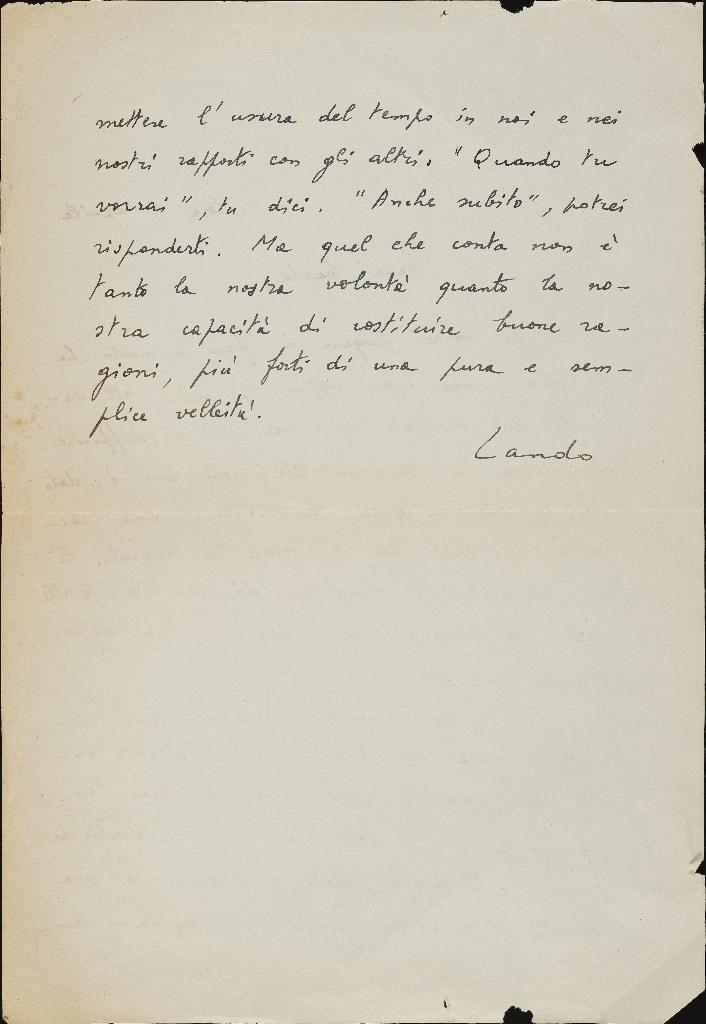 mettere l'usura del tempo in noi e nei
nostri rapporti con gli altri. "Quando tu
vorrai", tu dici. "Anche subito", potrei
risponderti. Ma quel che conta non è
tanto la nostra volontà quanto la no-
stra capacità di costituire buone ra-
gioni, più forti di una pura e sem-
plice velleità.
Lando